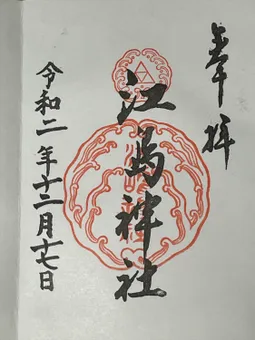 奉拝
江島神社
令和二年十二月十七日